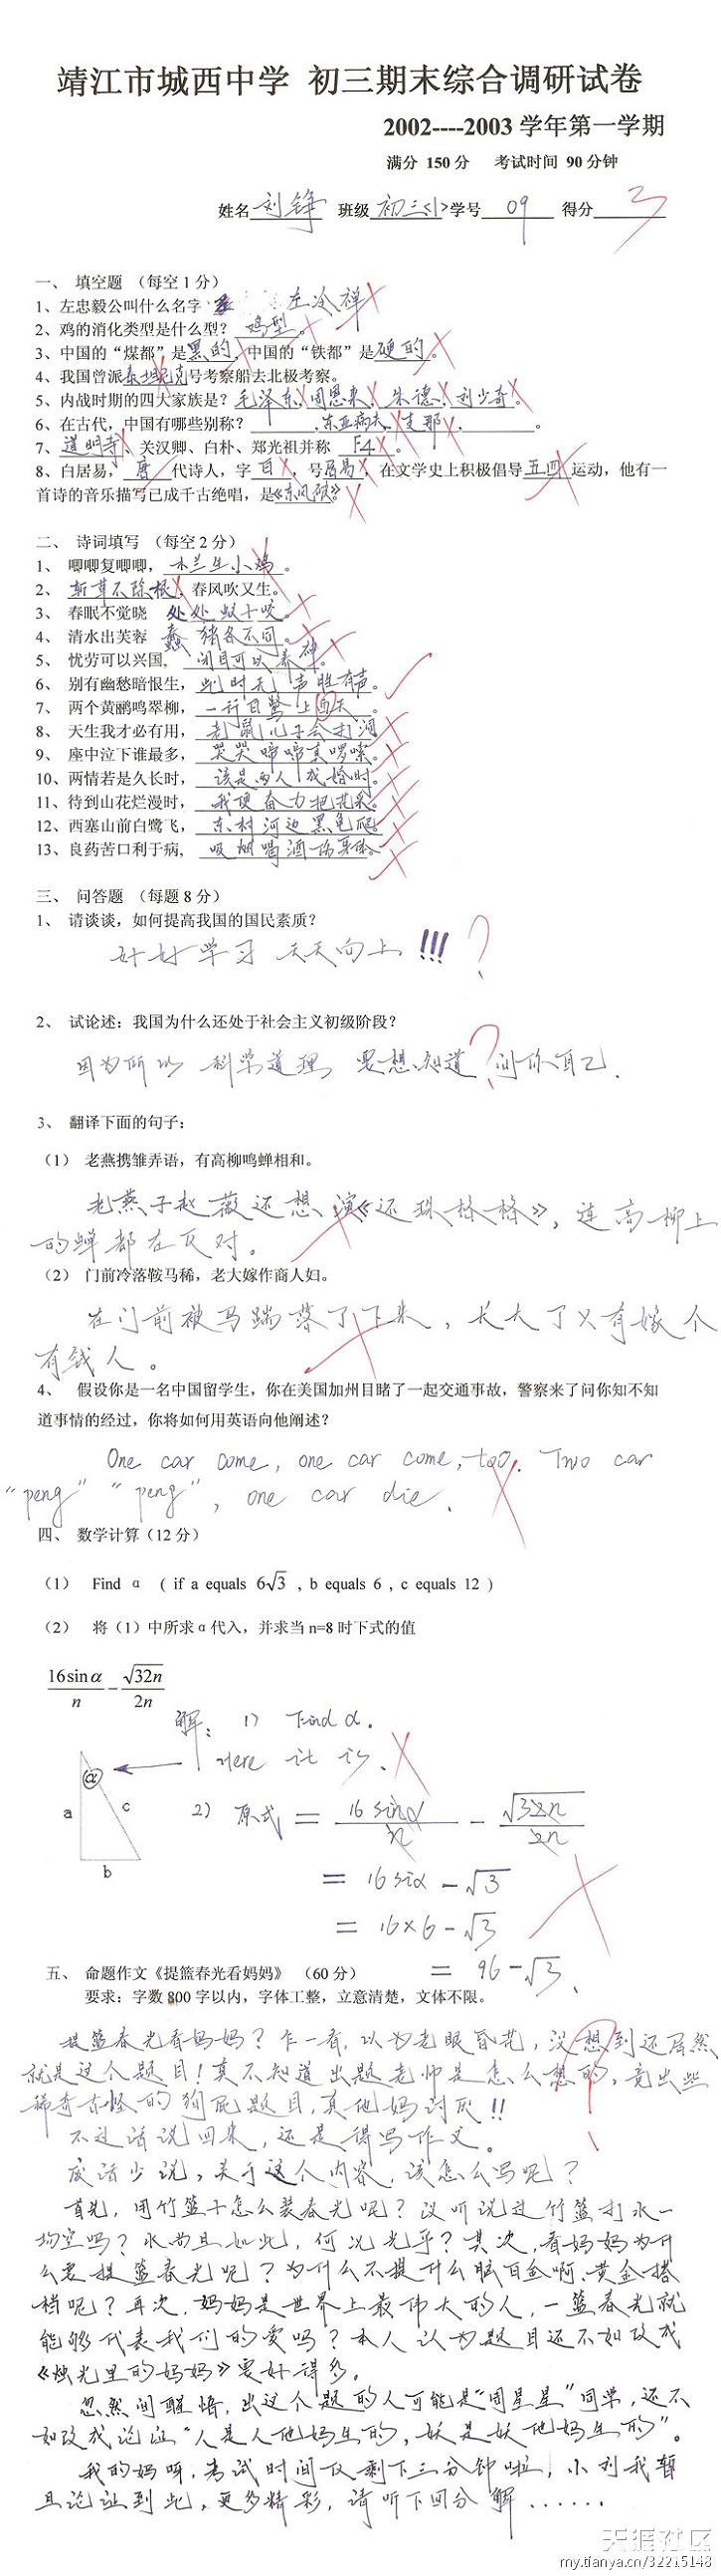 靖江市城西中学 初三期末综合调研试卷
2002----2003 学年第一学期
满分 150 分 考试时间 90 分钟
姓名 刘铮 班级 初三<1> 学号 09 得分 3
一、 填空题 （每空 1 分）
1、左忠毅公叫什么名字 左冷禅
2、鸡的消化类型是什么型? 鸡型。
3、中国的“煤都”是黑的，中国的“铁都”是硬的。
4、我国曾派泰坦尼克号考察船去北极考察。
5、内战时期的四大家族是? 毛泽东、周恩来、朱德、刘少奇。
6、在古代，中国有哪些别称? 、东亚病夫、支那、 。
7、道明寺、关汉卿、白朴、郑光祖并称 F4 。
8、白居易，唐代诗人，字百，号居易，在文学史上积极倡导五四运动，他有一
首诗的音乐描写已成千古绝唱，是《东风破》
二、 诗词填写 （每空 2 分）
1、 唧唧复唧唧，木兰生小鸡。
2、 斩草不除根，春风吹又生。
3、 春眠不觉晓 处处蚊子咬。
4、 清水出芙蓉 蠢猪各不同。
5、 忧劳可以兴国， 闭目可以养神。
6、 别有幽愁暗恨生，此时无声胜有声。
7、 两个黄鹂鸣翠柳，一行白鹭上西天。
8、 天生我才必有用，老鼠儿子会打洞
9、 座中泣下谁最多，哭哭啼啼真啰嗦。
10、两情若是久长时，该是两人成婚时。
11、待到山花烂漫时，我便奋力把花采。
12、西塞山前白鹭飞，东村河边黑龟爬。
13、良药苦口利于病， 吸烟喝酒伤身体。
三、 问答题 （每题 8 分）
1、 请谈谈，如何提高我国的国民素质?
好好学习 天天向上 !!! ?
2、 试论述：我国为什么还处于社会主义初级阶段?
因为所以 科学道理 要想知道 ? 问你自己.
3、 翻译下面的句子：
（1） 老燕携雏弄语，有高柳鸣蝉相和。
老燕子赵薇还想演《还珠格格》，连高柳上
的蝉都在反对。
（2） 门前冷落鞍马稀，老大嫁作商人妇。
在门前被马踹落了下来，长大了只有嫁个
有钱人。
4、 假设你是一名中国留学生，你在美国加州目睹了一起交通事故，警察来了问你知不知
道事情的经过，你将如何用英语向他阐述?
One car come, one car come, too. Two car
"peng" "peng", one car die.
四、 数学计算（12 分）
（1） Find α ( if a equals 6√3 , b equals 6 , c equals 12 )
（2） 将（1）中所求α代入，并求当 n=8 时下式的值
16sinα/n - √32n/2n
解: 1) Find α.
Here it is.
α
a c
b
2) 原式 = 16 sinα/n - √32n/2n
= 16 siα - √3
= 16×6 - √3
= 96 - √3 .
五、 命题作文《提篮春光看妈妈》 （60 分）
要求：字数 800 字以内，字体工整，立意清楚，文体不限。
提篮春光看妈妈? 乍一看，以为老眼昏花，没想到还居然
就是这个题目! 真不知道出题老师是怎么想的，竟出些
稀奇古怪的狗屁题目，真他妈讨厌!!
不过话说回来，还是得写作文。
废话少说，关于这个内容，该怎么写呢?
首先，用竹篮子怎么装春光呢? 没听说过竹篮打水一
场空吗? 水尚且如此，何况光乎? 其次，看妈妈为什
么要提篮春光呢? 为什么不提什么脑白金啊、黄金搭
档呢? 再次，妈妈是世界上最伟大的人，一篮春光就
能够代表我们的爱吗? 本人认为题目还不如改成
《烛光里的妈妈》要好得多。
忽然间醒悟，出这个题的人可能是“周星星”同学，还不
如改成论证“人是人他妈生的，妖是妖他妈生的”。
我的妈呀，考试时间仅剩下三分钟啦，小刘我暂
且论证到此，更多精彩，请听下回分解......
天涯社区
my.tianya.cn/32215148